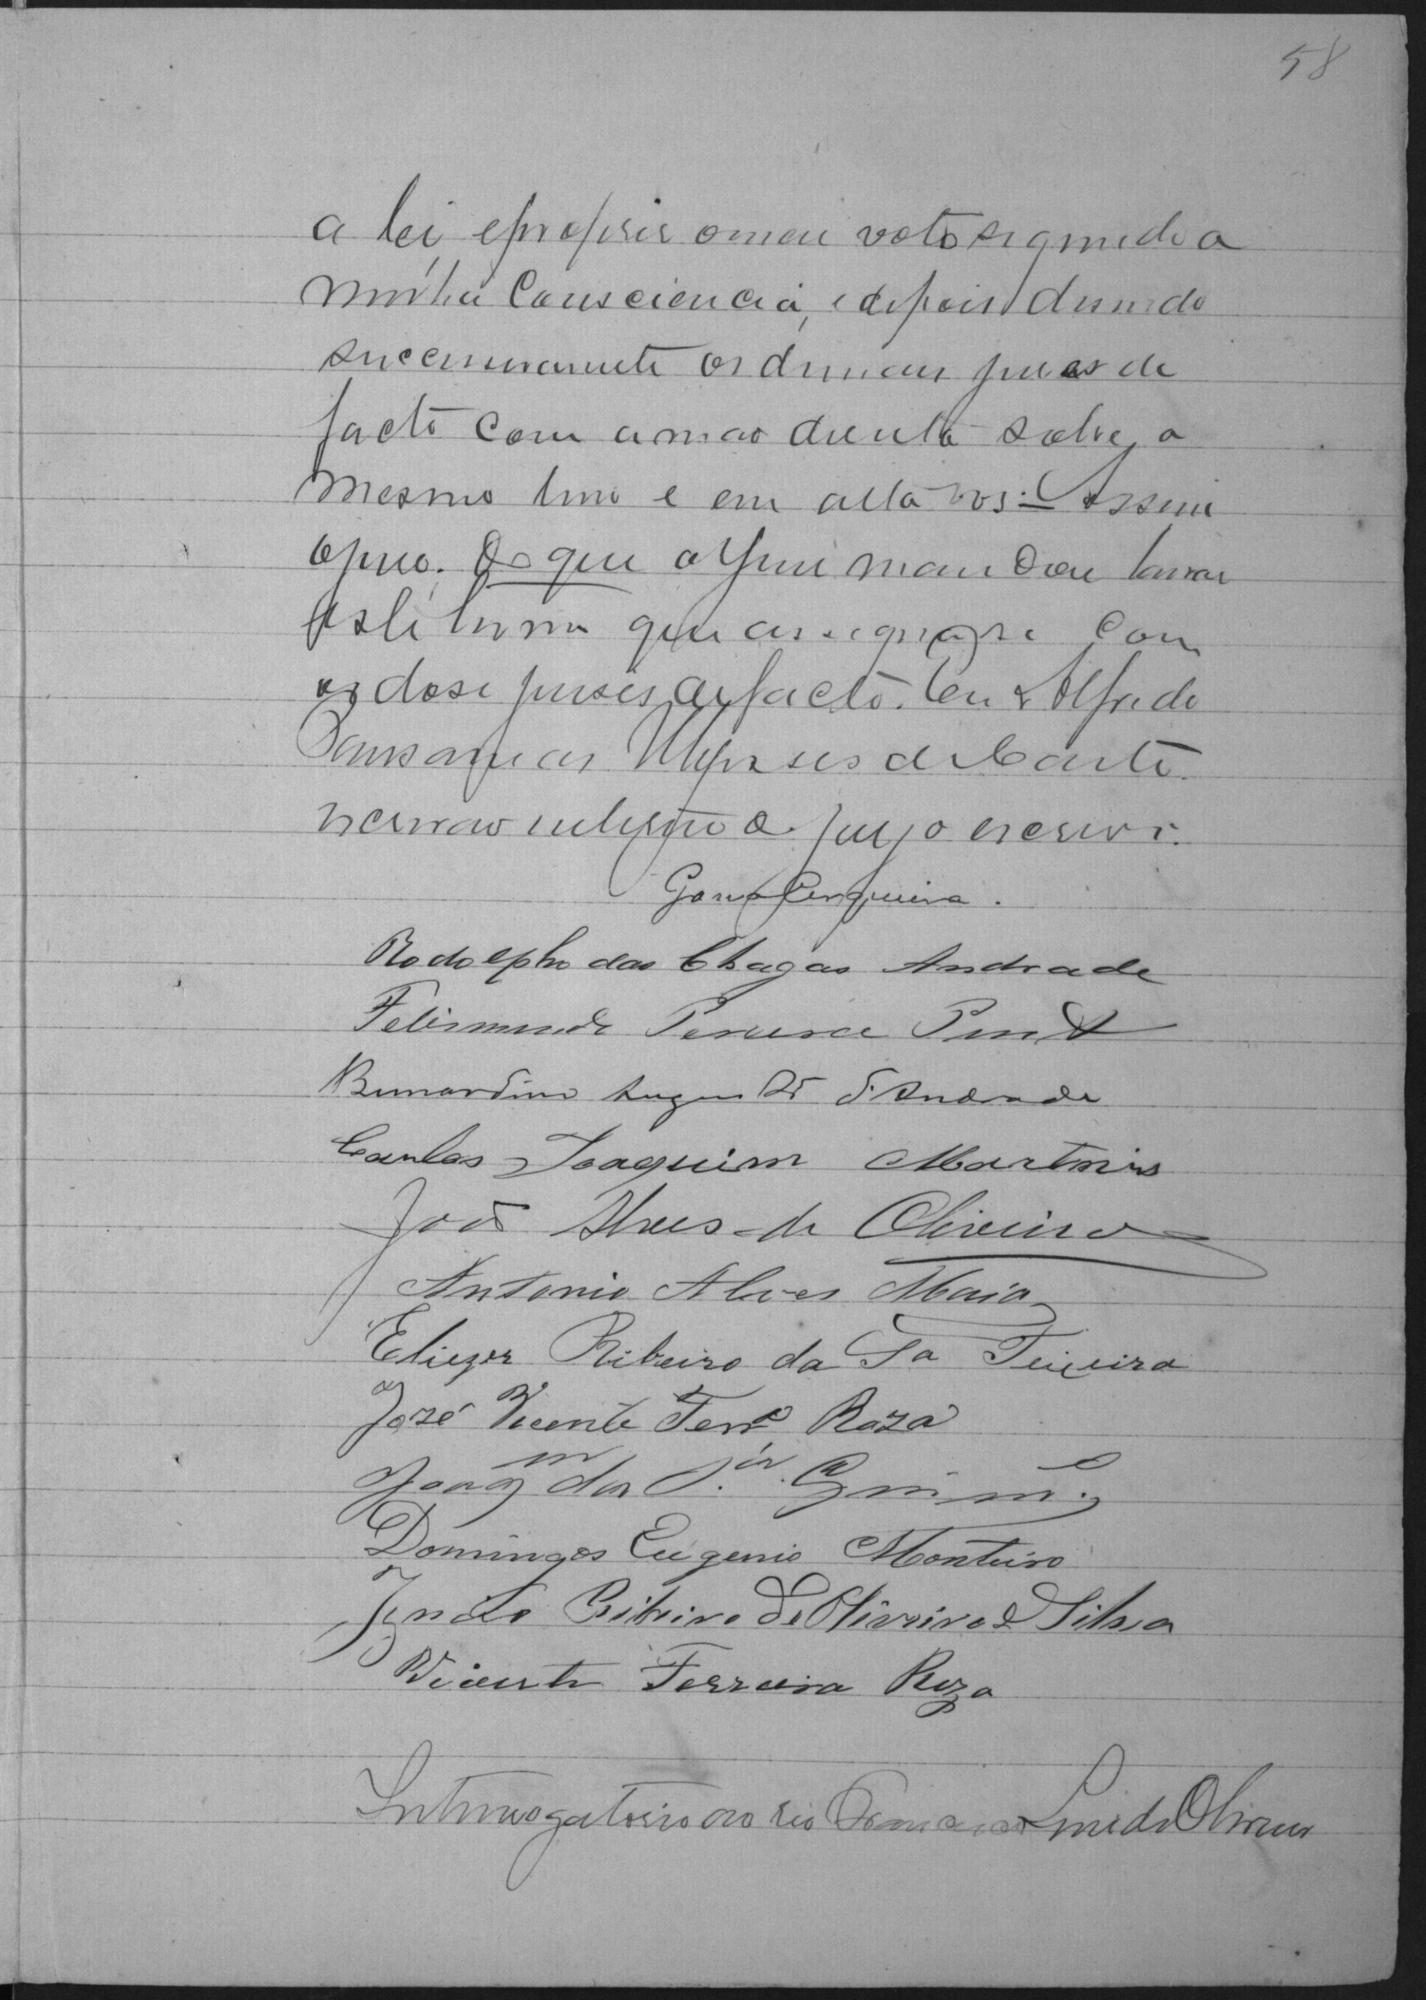 58
a lei, e proferir o meu voto segundo a
minha Consciencia, e depois dizendo
successivamente os demais juises de
facto com a mão direita sobre o
mesmo livro e em alta vos: Assim
o juro. Do que o Juis mandou lavrar
este termo que assigna com
os dose juises de facto. Eu Alfredo
Ulysses de
escrivão interino do jury o escrevi.
Cerqueira.
Rodolpho das Chagas Andrade
Felismundo Pereira
Bernardino Augusto d'Andrade
Carlos Joaquim Martins
João Alves de Oliveira
Antonio Alves Maia
Eliezer Ribeiro da Sa Teixeira
José Vicente Ferrª Roza
Joaqm dos
Domingos Eugenio Monteiro
Ribeiro de Oliveira e Silva
Vicente Ferreira Roza
Interrogatorio ao reo Francisco de Oliveira